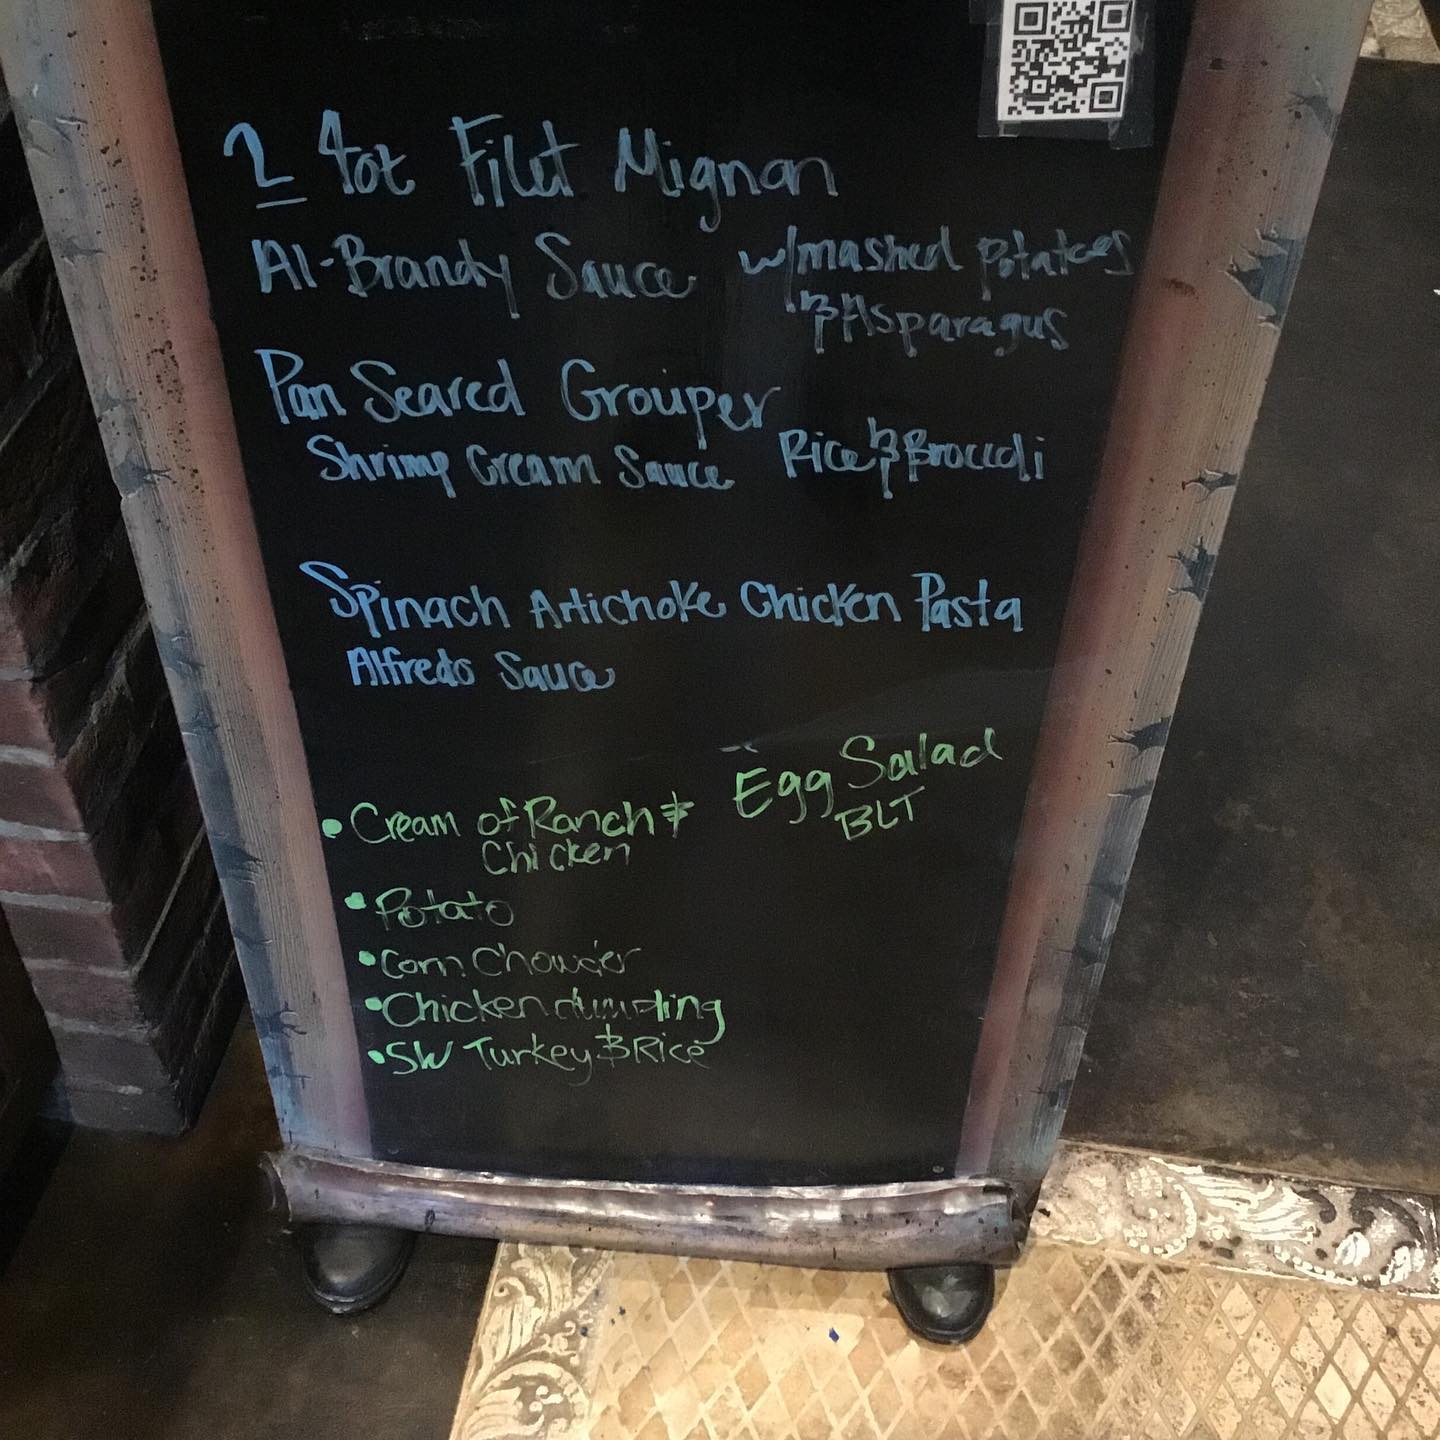 2 4oz Filet Mignon
A1-Brandy Sauce w/mashed potatoes
& Asparagus
Pan Seared Grouper
Shrimp Cream Sauce Rice & Broccoli
Spinach Artichoke Chicken Pasta
Alfredo Sauce
Egg Salad
BLT
• Cream of Ranch &
Chicken
• Potato
• Corn Chowder
• Chicken dumpling
• SW Turkey & Rice